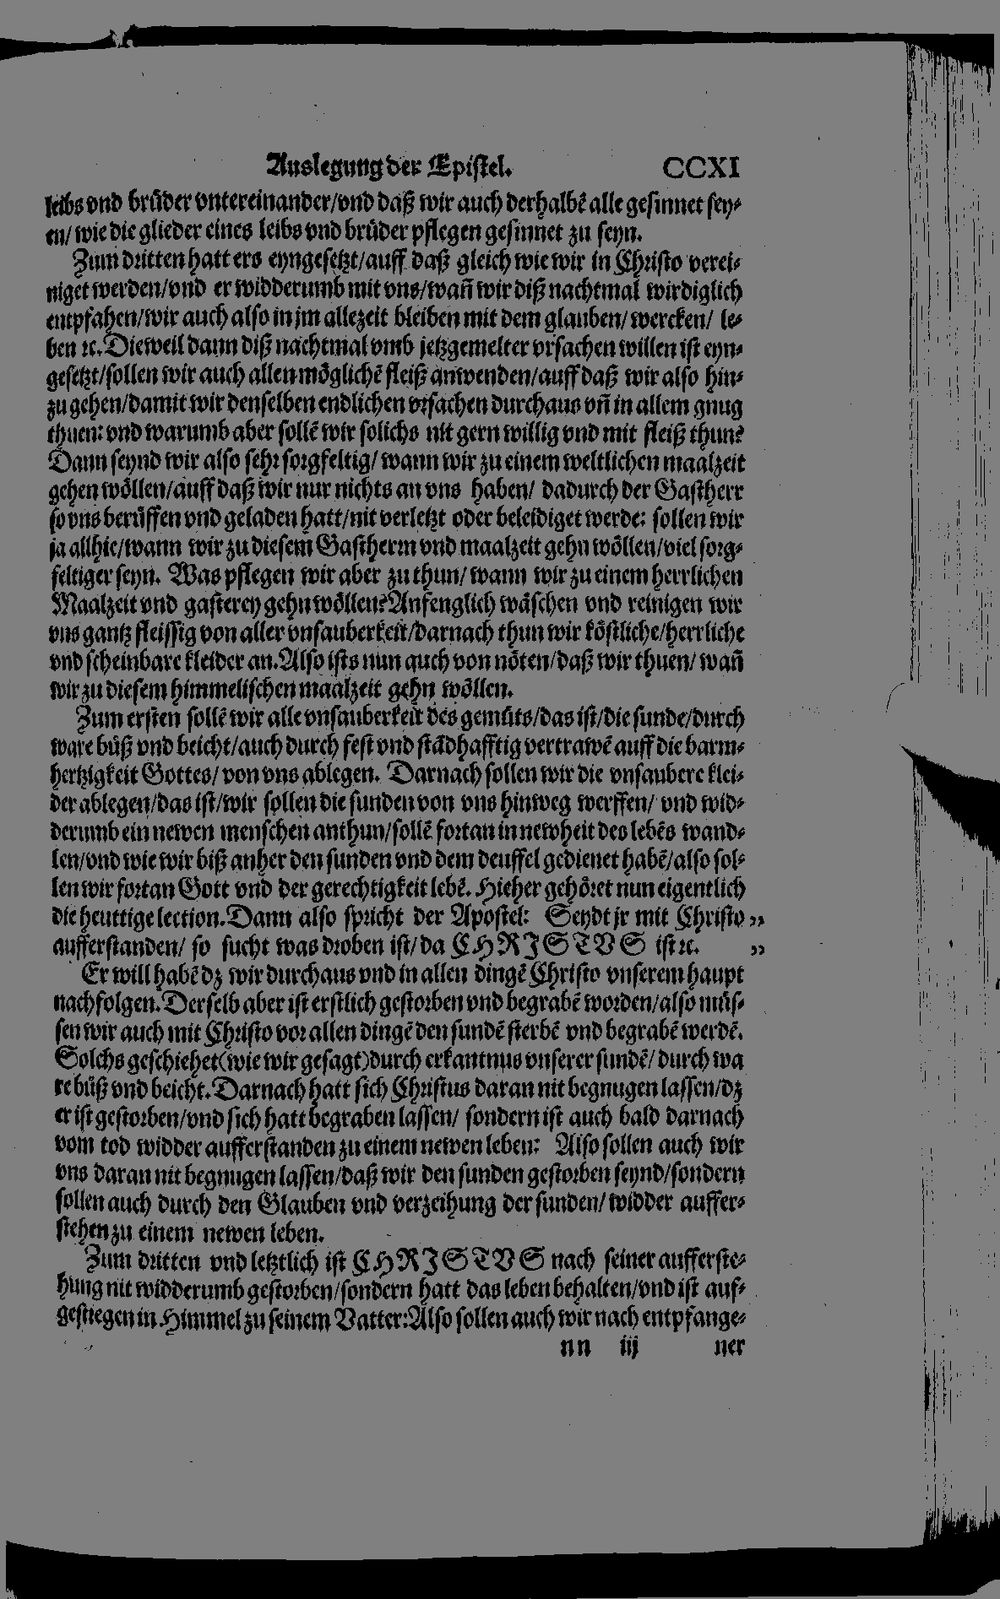 Auslegung der Epistel. CCXI
leibs vnd brüder vntereinander/vnd daß wir auch derhalbē alle gesinnet sey-
en/ wie die glieder eines leibs vnd brüder pflegen gesinnet zu seyn.
Zum dritten hatt ers eyngesetzt/auff daß gleich wie wir in Christo verei-
niget werden/vnd er widderumb mit vns/wañ wir diß nachtmal wirdiglich
entpfahen/wir auch also in jm allezeit bleiben mit dem glauben/ wercken/ le-
ben ꝛc. Dieweil dann diß nachtmal vmb jetzgemelter vrsachen willen ist eyn-
gesetzt/sollen wir auch allen möglichē fleiß anwenden/auff daß wir also hin-
zu gehen/damit wir denselben endlichen vrsachen durchaus vñ in allem gnug
thuen: vnd warumb aber sollē wir solichs nit gern willig vnd mit fleiß thun?
Dann seynd wir also sehr sorgfeltig/ wann wir zu einem weltlichen maalzeit
gehen wöllen/auff daß wir nur nichts an vns haben/ dadurch der Gastherr
so vns berüffen vnd geladen hatt/nit verletzt oder beleidiget werde: sollen wir
ja allhie/wann wir zu diesem Gastherrn vnd maalzeit gehn wöllen/viel sorg-
feltiger seyn. Was pflegen wir aber zu thun/ wann wir zu einem herrlichen
Maalzeit vnd gasterey gehn wöllen? Anfenglich wäschen vnd reinigen wir
vns gantz fleissig von aller vnsauberkeit/darnach thun wir köstliche/herrliche
vnd scheinbare kleider an. Also ists nun auch von nöten/daß wir thuen/ wañ
wir zu diesem himmelischen maalzeit gehn wöllen.
Zum ersten sollē wir alle vnsauberkeit des gemüts/das ist/die sunde/durch
ware büß vnd beicht/auch durch fest vnd städhafftig vertrawē auff die barm-
hertzigkeit Gottes/ von vns ablegen. Darnach sollen wir die vnsaubere klei-
der ablegen/das ist/wir sollen die sunden von vns hinweg werffen/ vnd wid-
derumb ein newen menschen anthun/sollē fortan in newheit des lebēs wand-
len/vnd wie wir biß anher den sunden vnd dem deuffel gedienet habē/also sol-
len wir fortan Gott vnd der gerechtigkeit lebē. Hieher gehöret nun eigentlich
die heuttige lection. Dann also spricht der Apostel: Seydt jr mit Christo „
aufferstanden/ so sucht was droben ist/ da CHRISTVS ist ꝛc. „
Er will habē dz wir durchaus vnd in allen dingē Christo vnserem haupt
nachfolgen. Derselb aber ist erstlich gestorben vnd begrabē worden/also müs-
sen wir auch mit Christo vor allen dingē den sundē sterbē vnd begrabē werdē.
Solchs geschiehet (wie wir gesagt) durch erkantnus vnserer sundē/ durch wa
re büß vnd beicht. Darnach hatt sich Christus daran nit begnugen lassen/dz
er ist gestorben/vnd sich hatt begraben lassen/ sondern ist auch bald darnach
vom tod widder aufferstanden zu einem newen leben: Also sollen auch wir
vns daran nit begnugen lassen/daß wir den sunden gestorben seynd/sondern
sollen auch durch den Glauben vnd verzeihung der sunden/ widder auffer-
stehen zu einem newen leben.
Zum dritten vnd letztlich ist CHRISTVS nach seiner aufferste-
hung nit widderumb gestorben/sondern hatt das leben behalten/vnd ist auf-
gestiegen in Himmel zu seinem Vatter: Also sollen auch wir nach entpfange-
nn iij ner